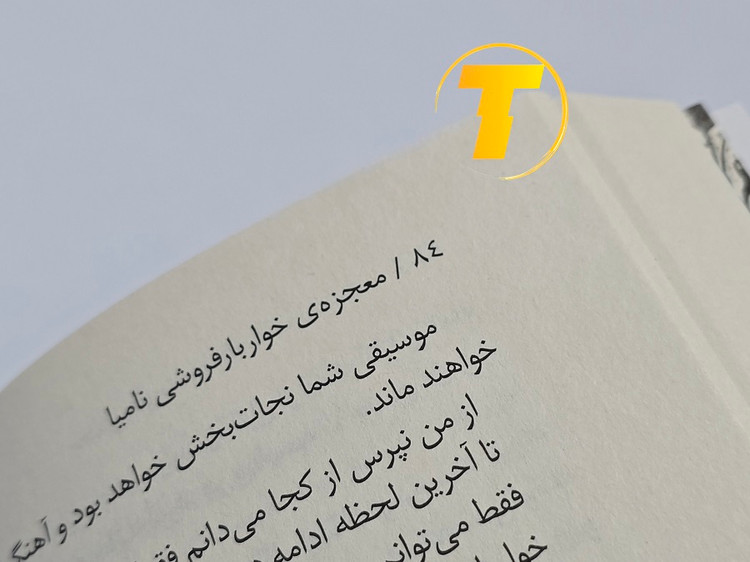 T
٨٤ / معجزه‌ی خواربارفروشی نامیا
موسیقی شما نجات‌بخش خواهد بود و
خواهند ماند.
از من نپرس از کجا می‌دانم
تا آخرین لحظه ادامه
فقط